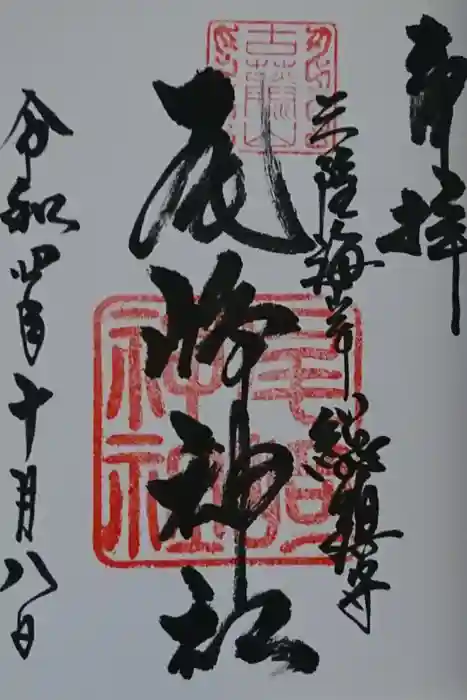 御拝
三陸海岸総鎮守
尾崎神社
令和四年十月八日
尾崎神社